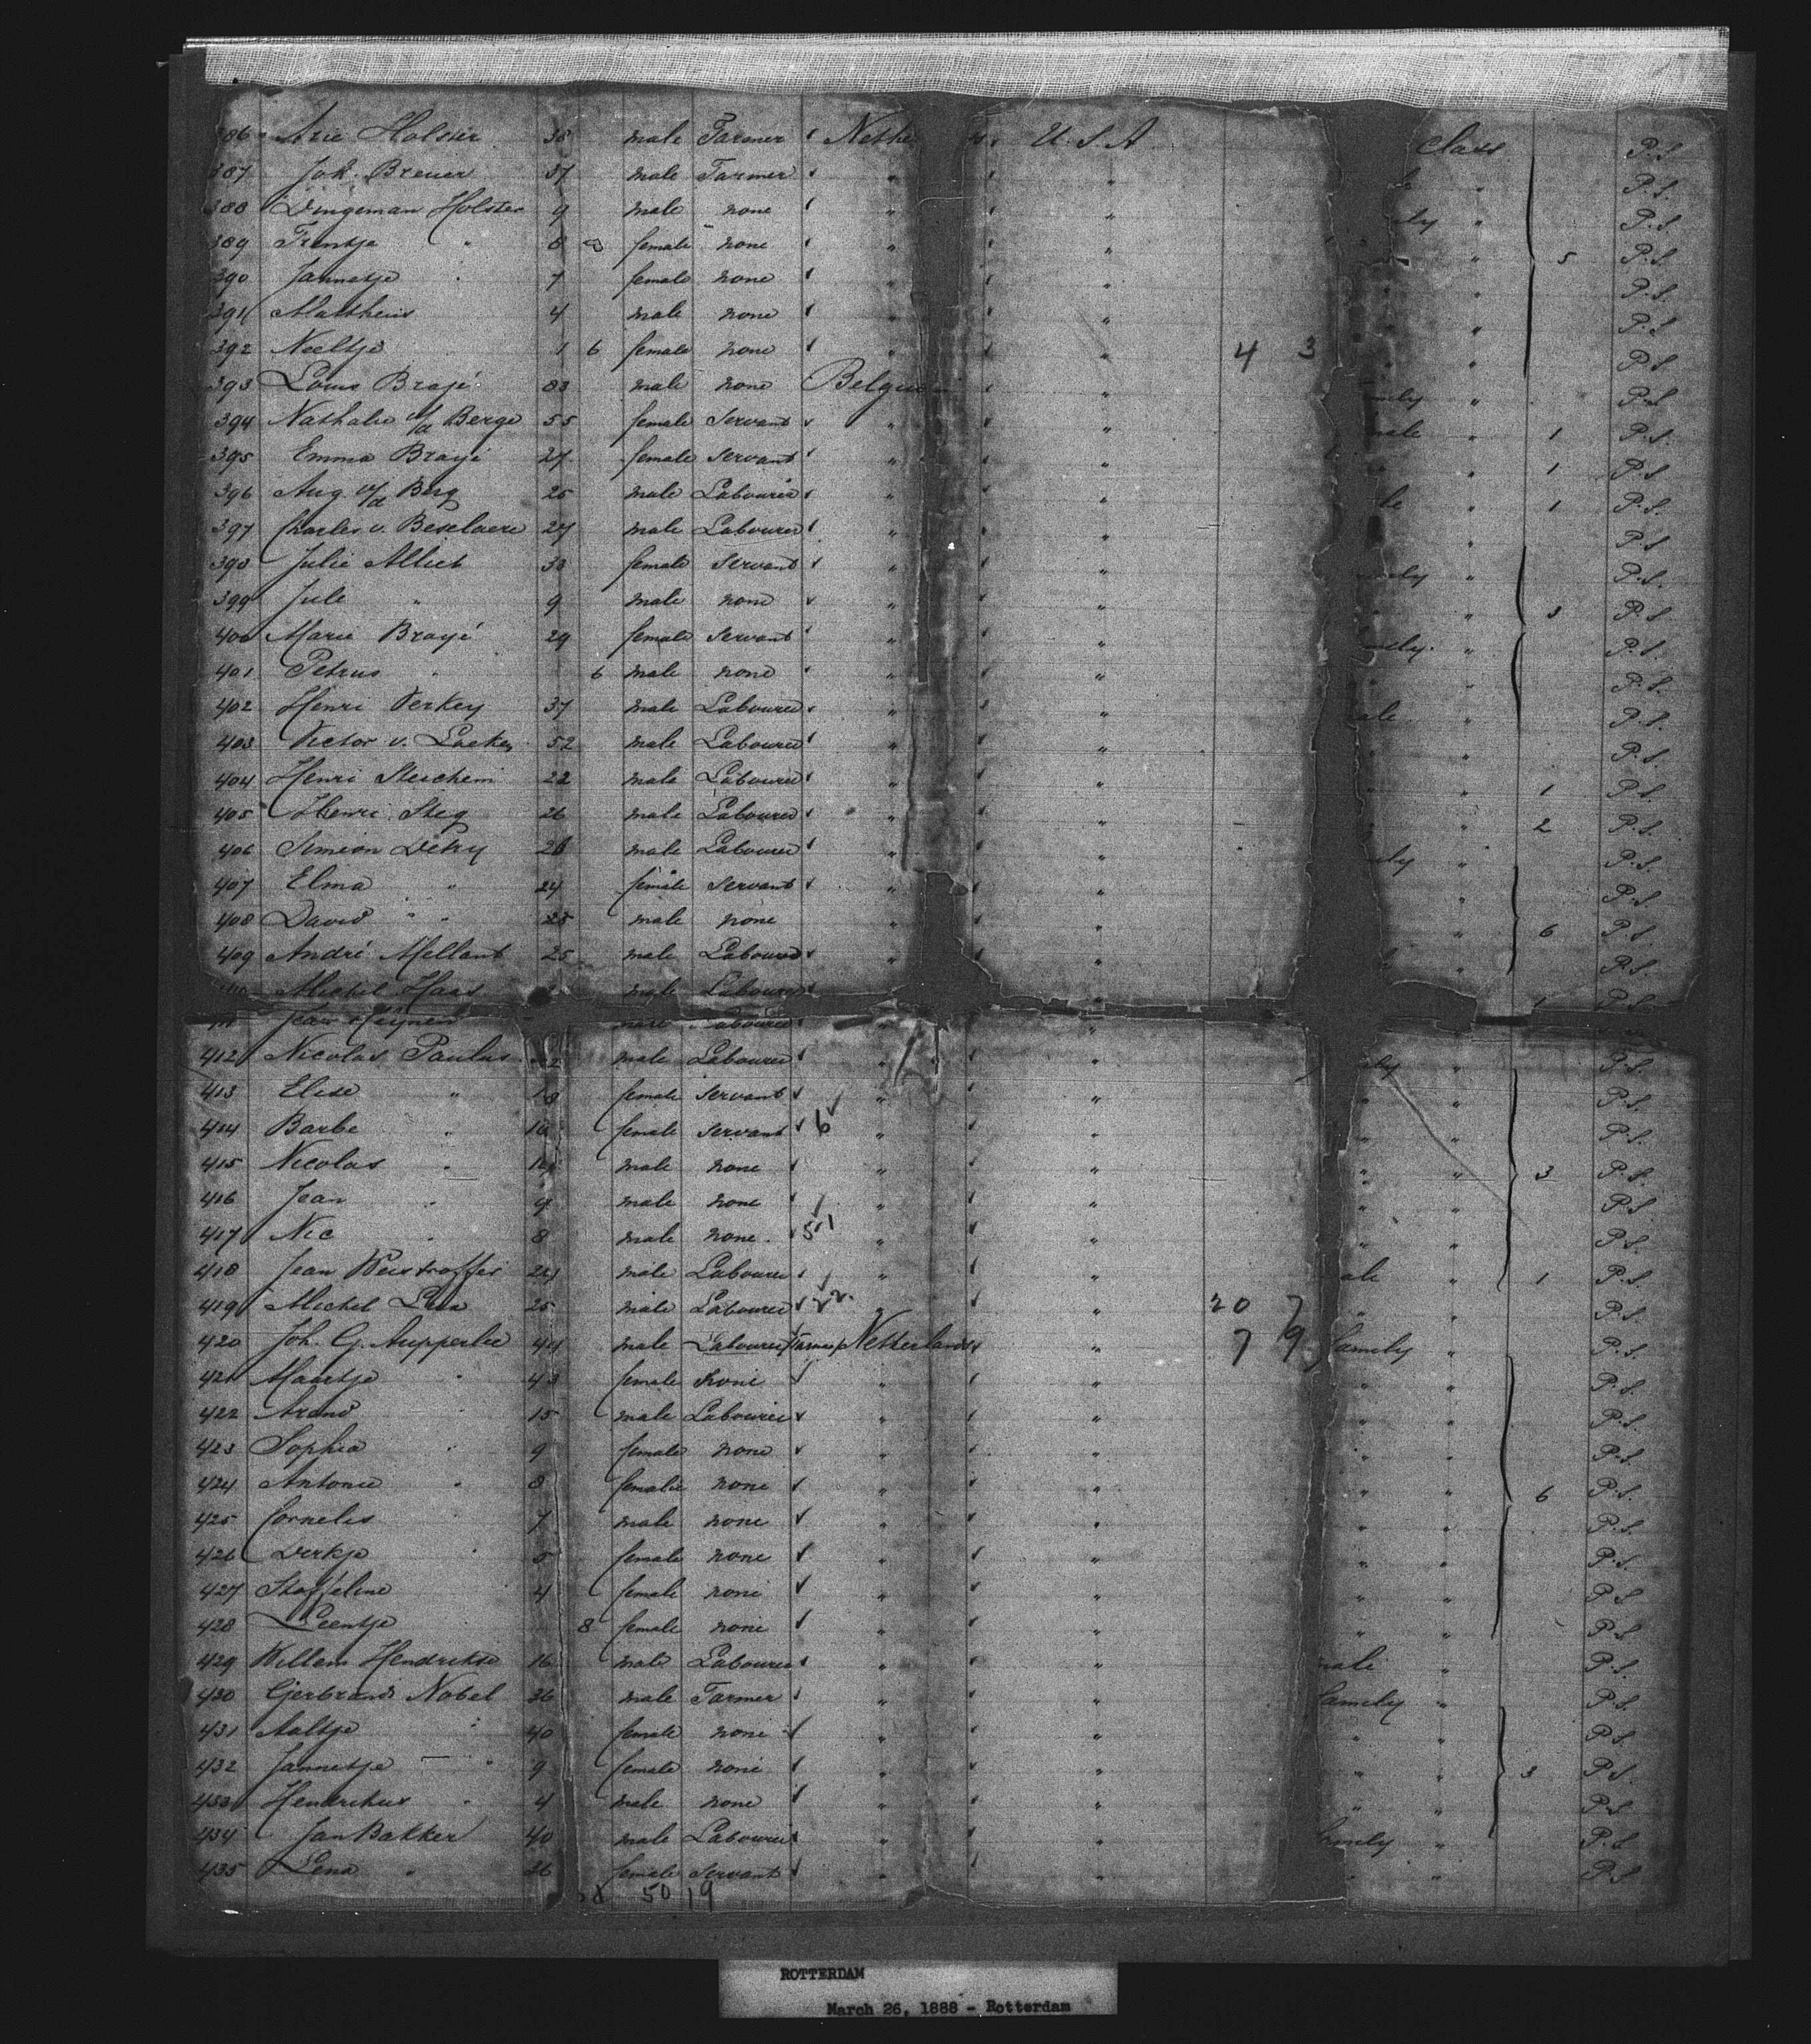 386 Arie Holster 38 male Farmer Nethe U.S.A class P.S.
387 Joh. Breuer 37 male Farmer " " P.S.
388 Dingeman Holster 9 male none " " ily " P.S.
389 Trentje " 8 female none " " " 5 P.S.
390 Jannetje " 7 female none " " " P.S.
391 Mattheus 4 male none " " " " P.S.
392 Neeltje 1 6 female none " " 4 3 " " P.S.
393 Louis Brajé 83 male none Belgiu " mily " P.S.
394 Nathalie v/d Berge 55 female Servant " " male " 1 P.S.
395 Emma Brayé 27 female Servant " " " 1 P.S.
396 Aug. v/d Berg 25 male Labourer " " le " 1 P.S.
397 Charles v. Beselaere 27 male Labourer " " " P.S.
398 Julie Alliet 33 female Servant " " mily " P.S.
399 Jule " 9 male none " " " " 3 P.S.
400 Marie Brayé 29 female Servant " " mily " P.S.
401 Petrus " 6 male none " " " P.S.
402 Henri Verkey 37 male Labourer " " ale " P.S.
403 Victor v. Loeke 52 male Labourer " " " P.S.
404 Henri 22 male Labourer " " " " 1 P.S.
405 Henri Steg 26 male Labourer " " " 2 P.S.
406 Simeon Detry 26 male Labourer " " ily " P.S.
407 Elma " 24 female Servant " " " P.S.
408 David " " 25 male none " " " 6 P.S.
409 André Mellant 25 male Labourer " " " P.S.
Michel Haas male Labourer " 1 P.S.
Jean Labourer " "
412 Nicolas Paulus 2 male Labourer " " ily " P.S.
413 Elise " 18 female Servant " " " " P.S.
414 Barbe " 16 female Servant 6 " " " " P.S.
415 Nicolas " male none " " " " 3 P.S.
416 Jean " 9 male none " " " " P.S.
417 Nic " 8 male none " " " " P.S.
418 Jean Weistroffer 24 male Labourer " " ale " 1 P.S.
419 Michel 25 male Labourer " " 20 7 " " P.S.
420 Joh. G. Aupperlee 44 male Labourer Farmer Netherlands " 7 9 family " P.S.
421 Maartje " 43 female none " " " " P.S.
422 Arend 15 male Labourer " " " " P.S.
423 Sophia " 9 female none " " " " P.S.
424 Antonie " 8 female none " " " " 6 P.S.
425 Cornelis " 7 male none " " " " P.S.
426 Dirkje " 5 female none " " " " P.S.
427 Stoffeline " 4 female none " " " " P.S.
428 Leentje 8 female none " " " " P.S.
429 Willem Hendrikse 16 male Labourer " " male " P.S.
430 Gerbrand Nobel 36 male Farmer " " family " P.S.
431 Aaltje " 40 female none " " " " P.S.
432 Jannetje " 9 female none " " " " 3 P.S.
433 Hendrikus " 4 male none " " " " P.S.
434 Jan Bakker 40 male Labourer " " family " P.S.
435 Lena " 26 female Servant " " " " P.S.
50 19
ROTTERDAM
March 26, 1888 - Rotterdam